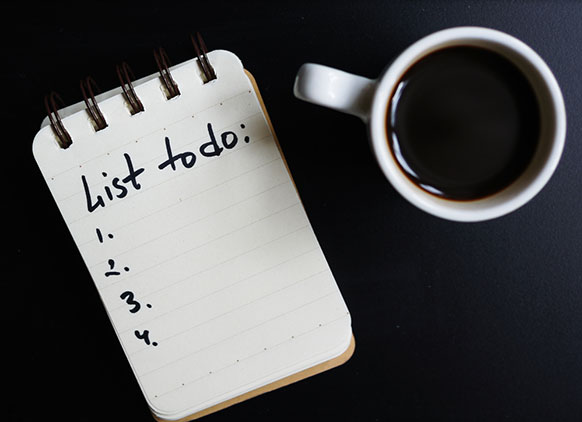 List to do:
1.
2.
3.
4.